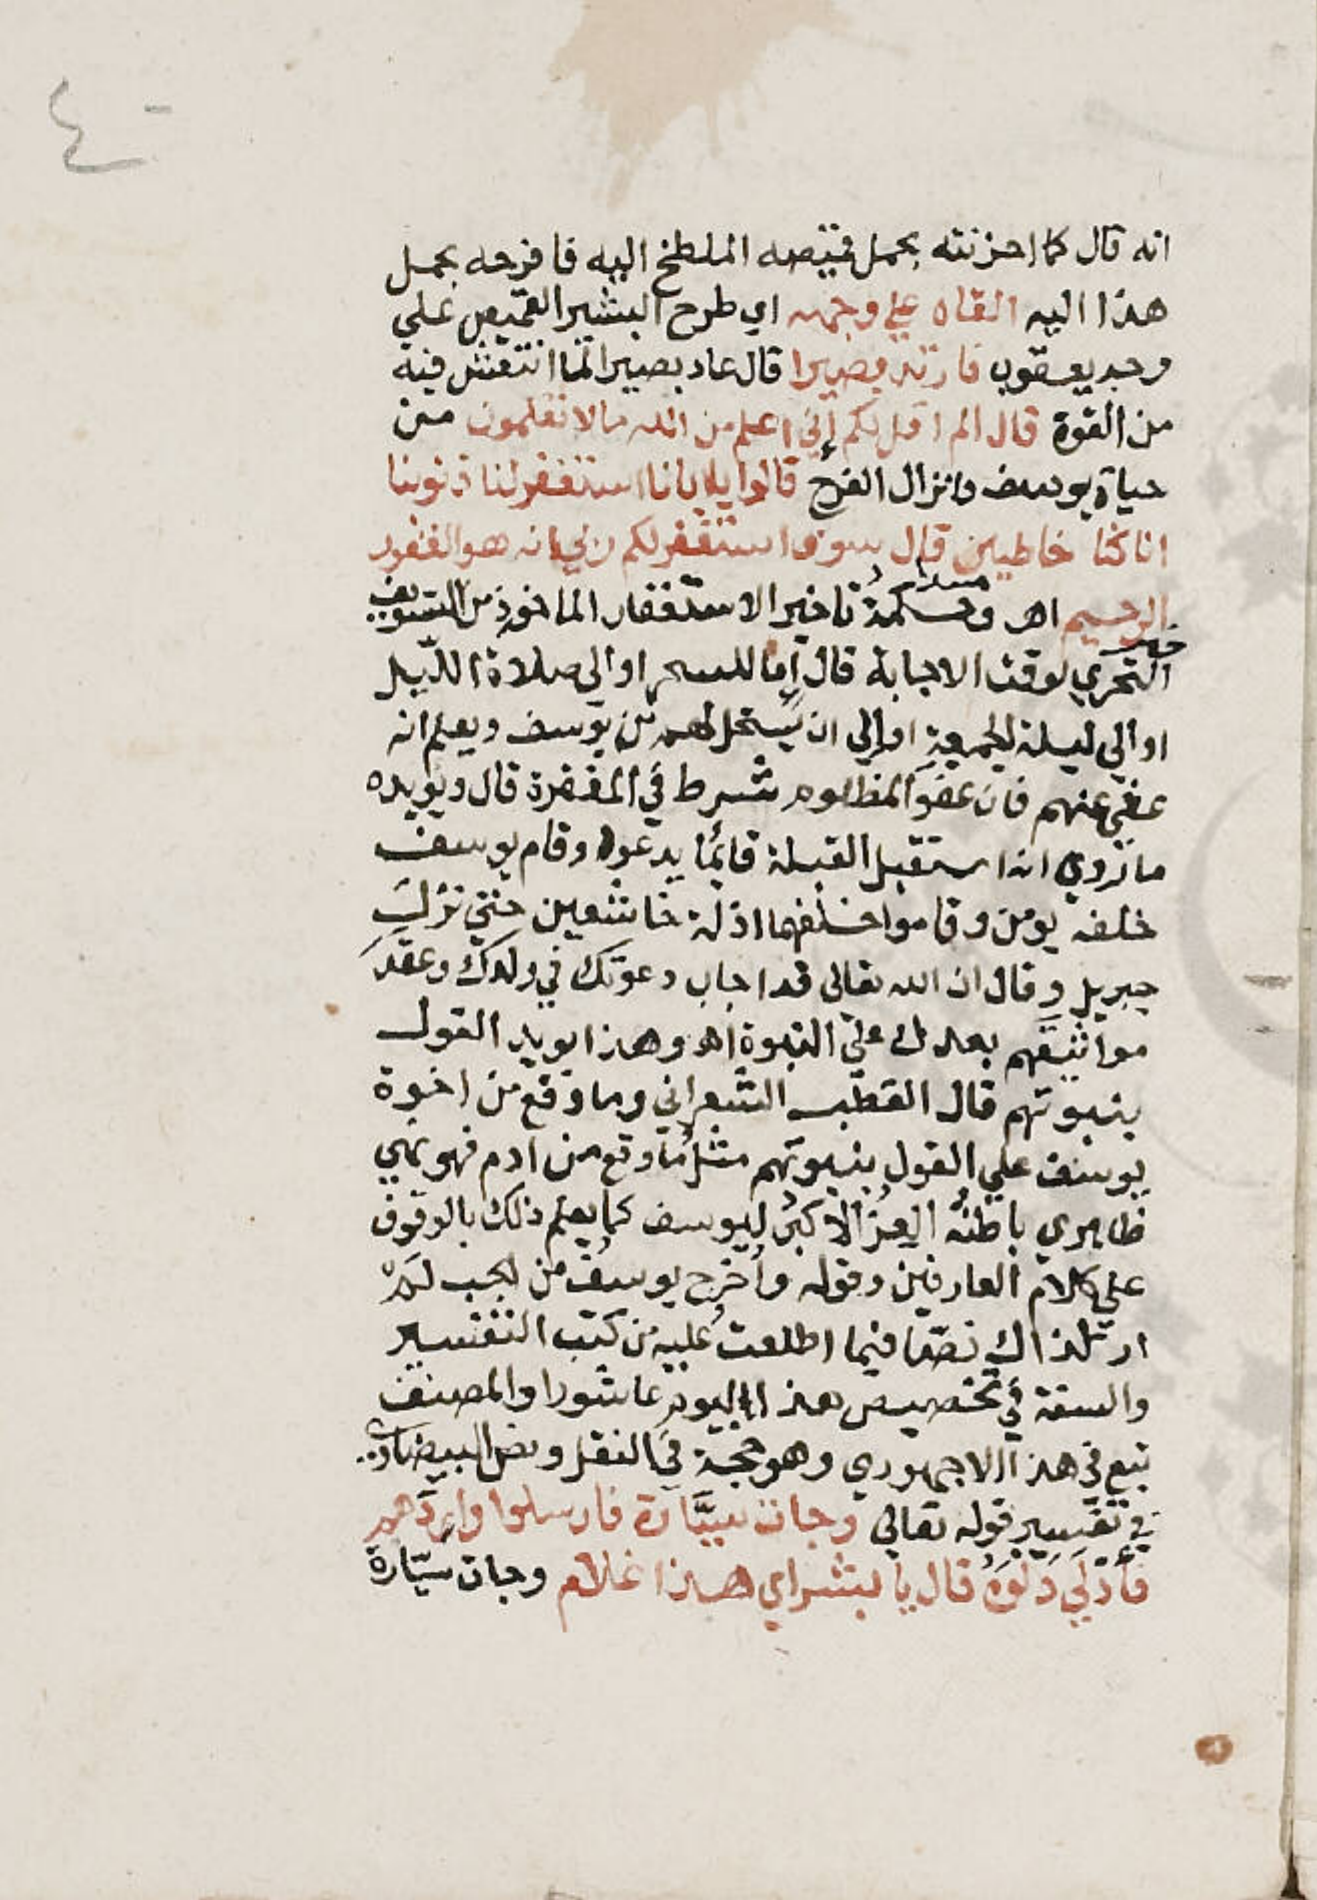 ٤٠
انه قال كما احزنته بحمل قميصه الملطخ اليه فافرحه بحمل
هذا اليه القاه علي وجهه اي طرح البشير القميص علي
وجه يعقوب فارتد بصيرا قال عاد بصيرا لما انتعش فيه
من القوة قال الم اقل لكم إني اعلم من الله مالا تعلمون من
حياة يوسف وانزال الفرج قالوا يا ابانا استغفر لنا ذنوبنا
انا كنا خاطيين قال سوف استغفر لكم ربي انه هو الغفور
الرحيم اهـ وحكمة تاخير الاستغفار الماخوذ من التسويف
التحري لوقت الاجابة قال إما للسحر او الي صلاة الليل
او الي ليلة الجمعة او إلي ان يستحل لهم من يوسف ويعلم انه
عفي عنهم فان عفو المظلوم شرط في المغفرة قال ويويده
ما روي انه استقبل القبلة قائما يدعو وقام يوسف
خلفه يومن وقاموا خلفهما اذلة خاشعين حتي نزل
جبريل وقال ان الله تعالي قد اجاب دعوتك في ولدك وعقد
مواثيقهم بعدك علي النبوة اهـ وهذا يويد القول
بنبوتهم قال القطب الشعراني وما وقع من اخوة
يوسف علي القول بنبوتهم مثل ما وقع من ادم فهو نهي
ظاهري باطنه العز الاكبر ليوسف كما يعلم ذلك بالوقوف
علي كلام العارفين وقوله وأخرج يوسف من الجب لم
ار لذلك نصا فيما اطلعت عليه من كتب التفسير
والسنة في تخصيص هذا اليوم عاشورا والمصنف
تبع في هذا الاجهوري وهو حجة في النقل ونص البيضاوي
في تفسير قوله تعالي وجات سيارة فارسلوا واردهم
فأدلي دلوه قال يا بشراي هذا غلام وجات سيارة